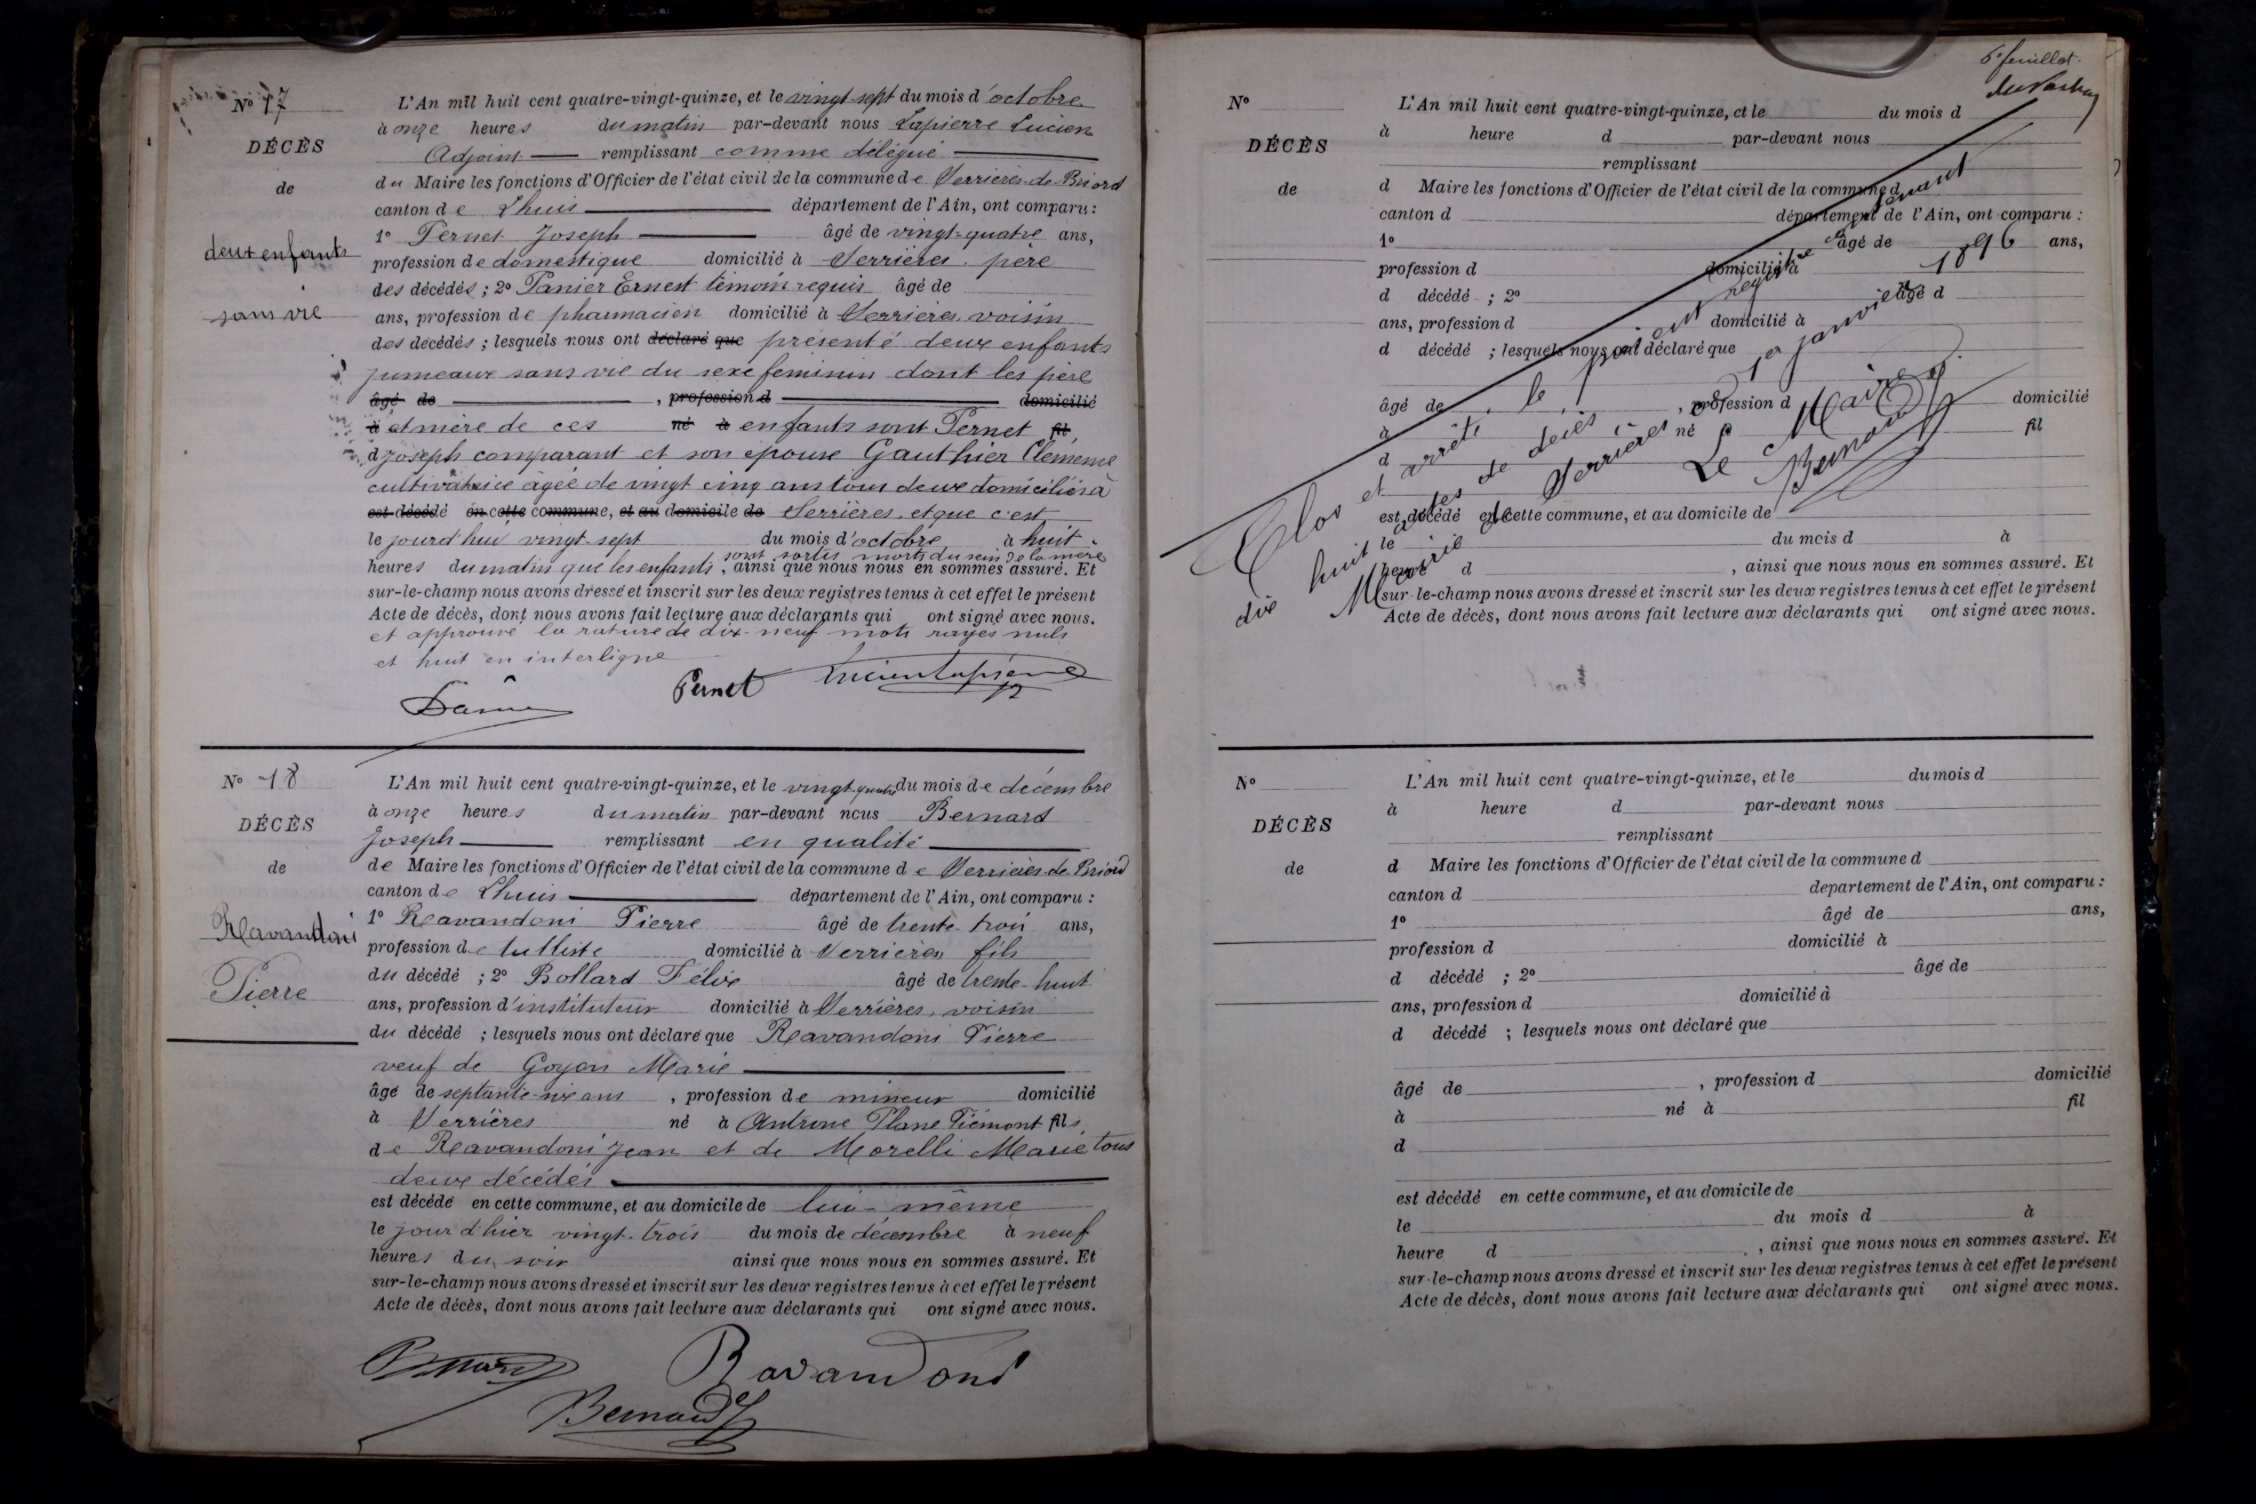 N° 17
DÉCÈS
de
deux enfants
sans vie
L'An mil huit cent quatre-vingt-quinze, et le vingt-sept du mois d'octobre
à onze heures du matin par-devant nous Lapierre Lucien
Adjoint remplissant comme délégué
du Maire les fonctions d'Officier de l'état civil de la commune de Serrières-de-Briord
canton de Lhuis département de l'Ain, ont comparu :
1° Pernet Joseph âgé de vingt-quatre ans,
profession de domestique domicilié à Serrières père
des décédés ; 2° Panier Ernest témoin requis âgé de
ans, profession de pharmacien domicilié à Serrières voisin
des décédés ; lesquels nous ont déclaré que présenté deux enfants
jumeaux sans vie du sexe féminin dont les père
âgé de , profession d domicilié
à et mère de ces né à enfants sont Pernet fil
d Joseph comparant et son épouse Gauthier Clémence
cultivatrice âgée de vingt cinq ans tous deux domiciliés à
est décédé en cette commune, et au domicile de Serrières, et que c'est
le jourd'hui vingt-sept du mois d'octobre à huit
sont sortis morts du sein de la mère
heures du matin que les enfants, ainsi que nous nous en sommes assuré. Et
sur-le-champ nous avons dressé et inscrit sur les deux registres tenus à cet effet le présent
Acte de décès, dont nous avons fait lecture aux déclarants qui ont signé avec nous.
et approuvé la rature de dix-neuf mots rayés nuls
et huit en interligne
Pernet Lucien Lapierre
N° 18
DÉCÈS
de
Ravandoni
Pierre
L'An mil huit cent quatre-vingt-quinze, et le vingt-quatre du mois de décembre
à onze heures du matin par-devant nous Bernard
Joseph remplissant en qualité
de Maire les fonctions d'Officier de l'état civil de la commune de Serrières-de-Briord
canton de Lhuis département de l'Ain, ont comparu :
1° Ravandoni Pierre âgé de trente-trois ans,
profession de tulliste domicilié à Serrières fils
du décédé ; 2° Bollard Félix âgé de trente-huit
ans, profession d'instituteur domicilié à Serrières, voisin
du décédé ; lesquels nous ont déclaré que Ravandoni Pierre
veuf de Goyon Marie
âgé de septante-six ans , profession de mineur domicilié
à Serrières né à Antrone Plane Piémont fils
de Ravandoni Jean et de Morelli Marie tous
deux décédés
est décédé en cette commune, et au domicile de lui-même
le jour d'hier vingt-trois du mois de décembre à neuf
heures du soir ainsi que nous nous en sommes assuré. Et
sur-le-champ nous avons dressé et inscrit sur les deux registres tenus à cet effet le présent
Acte de décès, dont nous avons fait lecture aux déclarants qui ont signé avec nous.
Ravandoni
Bernard J
6e feuillet.
N°
DÉCÈS
de
L'An mil huit cent quatre-vingt-quinze, et le du mois d
à heure d par-devant nous
remplissant
d Maire les fonctions d'Officier de l'état civil de la commune d
canton d département de l'Ain, ont comparu :
1° âgé de ans,
profession d domicilié à
d décédé ; 2° âgé d
ans, profession d domicilié à
d décédé ; lesquels nous ont déclaré que
âgé de , profession d domicilié
à né à fil
d
est décédé en cette commune, et au domicile de
le du mois d à
heure d , ainsi que nous nous en sommes assuré. Et
sur-le-champ nous avons dressé et inscrit sur les deux registres tenus à cet effet le présent
Acte de décès, dont nous avons fait lecture aux déclarants qui ont signé avec nous.
Clos et arrêté, le présent registre contenant
dix huit actes de décès,
Mairie de Serrières ce 1er janvier 1896
Le Maire,
Bernard J
N°
DÉCÈS
de
L'An mil huit cent quatre-vingt-quinze, et le du mois d
à heure d par-devant nous
remplissant
d Maire les fonctions d'Officier de l'état civil de la commune d
canton d département de l'Ain, ont comparu :
1° âgé de ans,
profession d domicilié à
d décédé ; 2° âgé de
ans, profession d domicilié à
d décédé ; lesquels nous ont déclaré que
âgé de , profession d domicilié
à né à fil
d
est décédé en cette commune, et au domicile de
le du mois d à
heure d , ainsi que nous nous en sommes assuré. Et
sur-le-champ nous avons dressé et inscrit sur les deux registres tenus à cet effet le présent
Acte de décès, dont nous avons fait lecture aux déclarants qui ont signé avec nous.